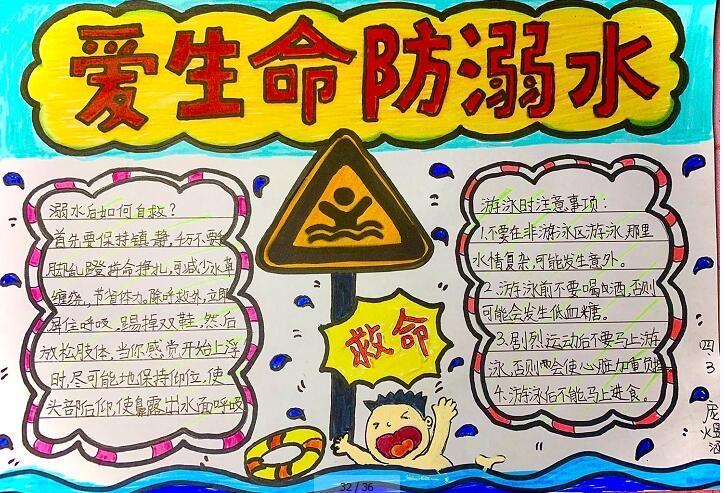 爱生命防溺水
溺水后如何自救?
首先要保持镇静,千万不要手
脚乱蹬拼命挣扎,可减少水草
缠绕,节省体力。除呼救外,立即
屏住呼吸,踢掉双鞋,然后
放松肢体,当你感觉开始上浮
时,尽可能地保持仰位,使
头部后仰,使鼻露出水面呼吸
救命
游泳时注意事项:
1.不要在非游泳区游泳,那里
水情复杂,可能发生意外。
2.游泳前不要喝酒,否则
可能会发生低血糖。
3.剧烈运动后不要马上游
泳,否则会使心脏加重负担
4.游泳后不能马上进食。
四3
32 / 36